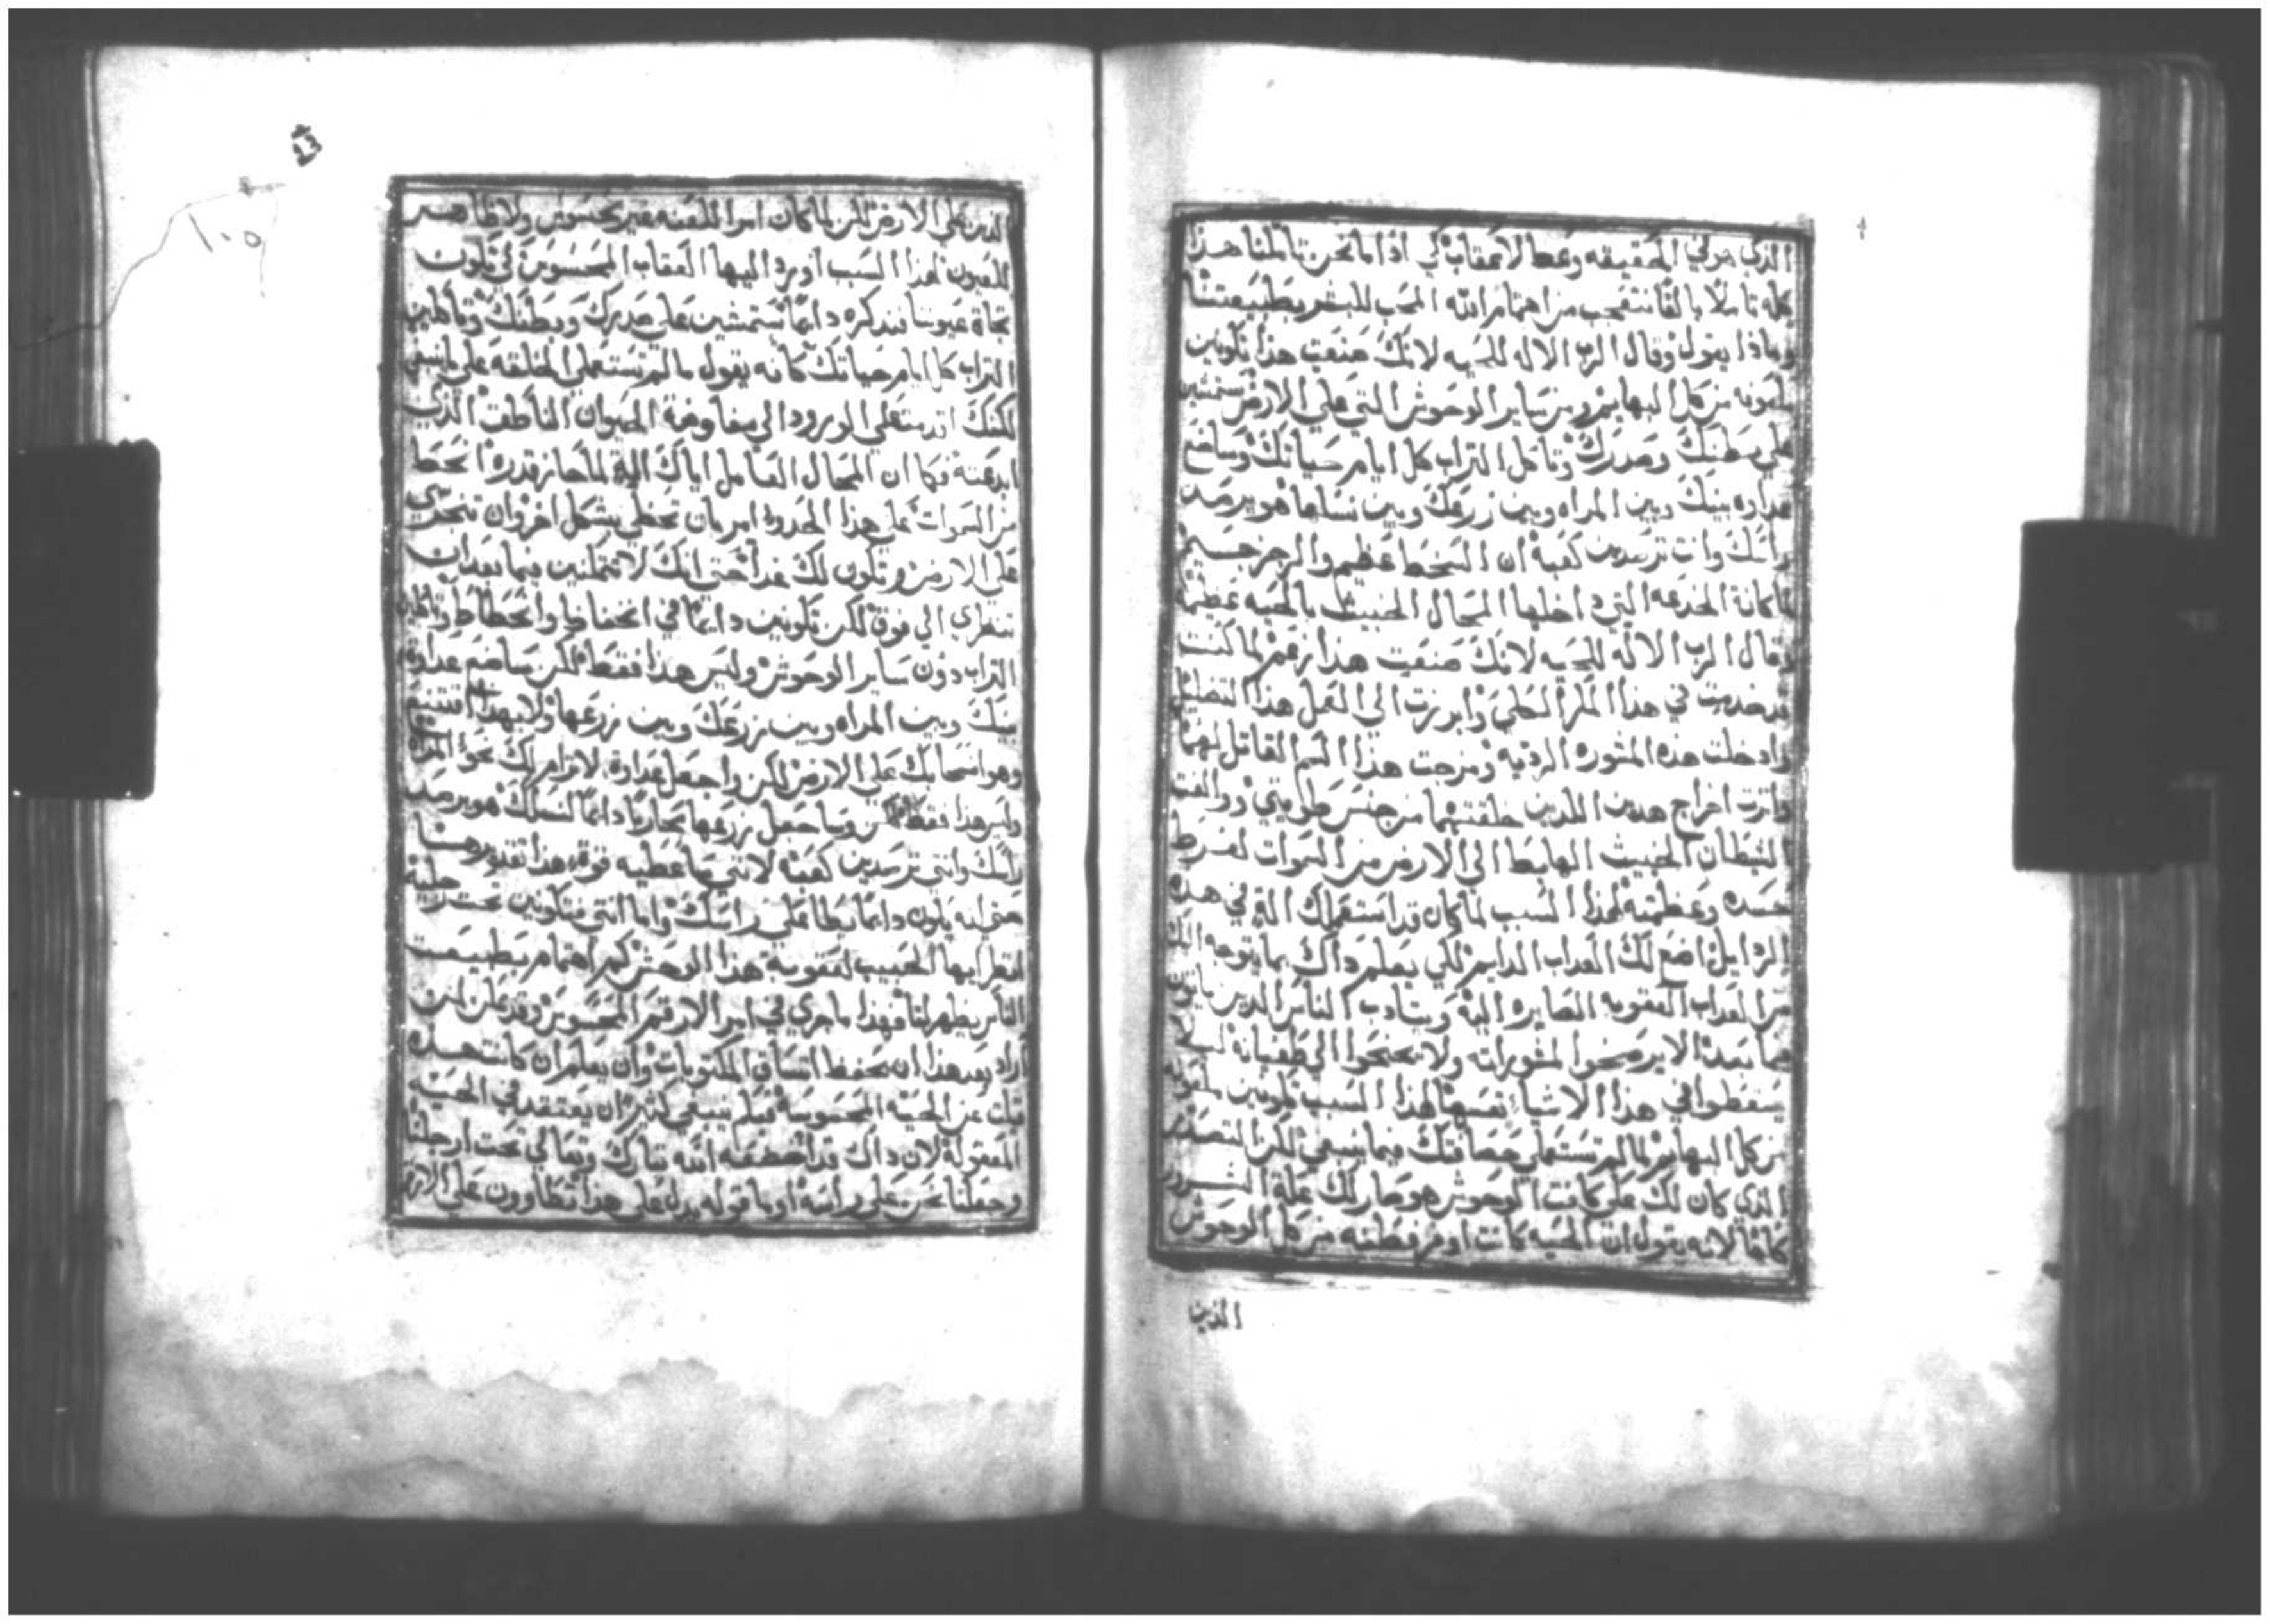 الذي هو في الحقيقه وعطا لاعقاب كي اذا ما نحن تاملنا هذا
كله تاملًا بالغًا نتعجب من اهتمام الله المحب للبشر بطبيعتنا
وماذا يقول وقال الرب الاله للحيه لانك صنعت هذا تكونين
ملعونه من كل البهايم ومن ساير الوحوش التي على الارض تمشين
على بطنك وصدرك وتاكل التراب كل ايام حياتك وساضع
عداوه بينك وبين المراه وبين زرعك وبين نسلها هو يرصد
راسك وانت ترصدين كعبه ان السخط عظيم والرجز جسيم
لما كانة الخدعه التي داخلها المحال الخبيث بالحيه عظيمة
وقال الرب الاله للحيه لانك صنعت هذا زعم لما كنت
قد خدمت في هذا المكر الطلي وابرزت الى الفعل هذا التضليل
وادخلت هذه المشوره الرديه ومزجت هذا السم القاتل لهما
واثرت اخراج هدين اللدين خلقتهما من جنس طويتي ووالفت
الشيطان الخبيث الهابط الى الارض من السموات لفرط
حسده وعظمته لهذا السبب لما كان قد استعملك الة في هده
الرذايل اضع لك العداب الدايم لكي يعلم داك بما يتوجه اليك
من العداب العقوبه الصايره اليه ويتادب الناس الدين ياتون
فيما بعد الا يرضخوا لمشوراته ولا يجنحوا الى طغيانه ليلا
يسقطوا في هذا الاشيا نفسها لهذا السبب تكونين ملعونه
من كل البهايم لما لم تستعملي حصافتك فيما ينبغي لكن التصغير
الذي كان لك على كانت الوحوش هو صار لك علة الشرور
كافا لانه يقول ان الحيه كانت اوفر فطنه من كل الوحوش
الذين
13
١٠٥
الذين على الارض لكن لما كان امر اللعنه غير محسوس ولا ظاهر
للعيون لهذا السبب اورد اليها العقاب المحسوس لكي تكون
تجاة عيوننا تندكره دايمًا ستمشين على صدرك وبطنك وتاكلين
التراب كل ايام حياتك كانه يقول ما لم تستعملي الخلقه على ما ينبغي
لكنك اقدمت على الورود الى مفاوضة الحيوان الناطق الذي
ابدعته فكما ان المحال العامل اياك الية لما جاز قدره انحط
من السموات على هذا الحدود امر بان تحظي بشكل اخر وان تتجري
على الارض وتكون لك غدا حتى انك لا تتمكنين فيما بعد ان
تنظري الى فوق لكن تكونين دايمًا في انخفاض وانحطاط وتاكلين
التراب دون ساير الوحوش وليس هذا فقط لكن ساضع عداوة
بينك وبين المراه وبين زرعك وبين زرعها ولا بهذا اقتنع
وهو انسحابك على الارض لكن واجعل عداوة لا ترام لك نحو المراة
وليس هذا فقط لكن وساجعل زرعها محاربًا دايمًا لنسلك هو يرصد
راسك وانتي ترصدين كعبه لانني ساعطيه قوة هذا تقديرها
حتى انه يكون دايمًا يطا على راسك واما انتي فتكونين تحت رجليه
انظر ايها الحبيب لعقوبة هذا الوحش كم اهتمام بطبيعت
الناس يظهر لنا فهذا ما جري في امر الارقم المحسوس وقد يمكن لمن
اراد بعد هذا ان يحفظ اتساق المكتوبات وان يعلم ان كانت هذه
قيلت عن الحية المحسوسة فبكم ينبغي اكثر ان يعتقد في الحية
المعقولة لان داك قد اخضعه الله تبارك وتعالى تحت ارجلنا
وجعلنا نحن على راسه او ما قوله يدل على هذا تطاوون على الارض